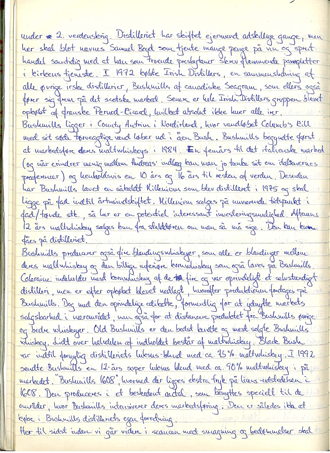 under 2. verdenskrig. Distilleriet har skiftet ejermænd adskillige gange, men
her skal blot nævnes Samuel Boyd som tjente mange penge på vin og spirit
handel samtidig med at han som troende presbyterianer skrev flammende pamfletter
i kirkens tjeneste. I 1972 købte Irish Distillers, en sammenslutning af
alle øvrige irske distillerier, Bushmills af canadiske Seagram, som ellers også
fører sig frem på det skotske marked. Senere er hele Irish Distillers gruppen blevet
opkøbt af franske Pernod-Ricard, hvilket absolut ikke huer alle irer.
Bushmills ligger i County Antrim i Nordirland, hvor vandløbet Columb's Rill
med sit søde vand løber ud i åen Bush. Bushmills begyndte først
at markedsføre deres maltwhiskey i 1984. En femårs til det italienske marked
(og når erindrer venlig mellem
) og henholdsvis en 10 års og 16 års til resten af verden. Desuden
har Bushmills lavet en såkaldt Millenium som blev distilleret i 1975 og skal
ligge på fad indtil årtusindskiftet. Millenium sælges på nuværende tidspunkt i
fad/tønde etc., så her er en potentiel interessant investeringsmulighed. Aftenens
12 års maltwhiskey sælges kun fra om man så må sige. Den kan kun
fåes på distilleriet.
Bushmills producerer også fire blendingswhiskeyer, som alle er blandinger mellem
deres maltwhiskey og den billige inferiøre kornwhiskey som også laves på Bushmills
Coleraine indeholder mest kornwhiskey af de fire og var oprindeligt et selvstændigt
distilleri, men er efter opkøbet blevet nedlagt, hvorefter produktionen foretages på
Bushmills. Dog med den oprindelige etikette, formentlig for at udnytte mærkets
salgbarhed i nærområdet, men også for at distancere produktet fra Bushmills øvrige
og bedre whiskeyer. Old Bushmills er den bedst kendte og mest solgte Bushmills
whiskey. Lidt over halvdelen af indholdet består af maltwhiskey. Black Bush
var indtil forrige distilleriets luksus-blend med ca. 75% maltwhiskey. I 1992
sendte Bushmills en 12-års super luksus blend med ca. 90% maltwhiskey på
markedet. "Bushmills 1608", hvormed der ligges ekstra tryk på licens udstedelsen i
1608. Den produceres i et beskedent antal, som benyttes specielt til de
områder, hvor Bushmills intensiverer deres markedsføring. Den er således ikke et
købe i Bushmills distilleriets egen forretning.
Her til sidst inden vi går videre i seancen med smagning og bedømmelser skal